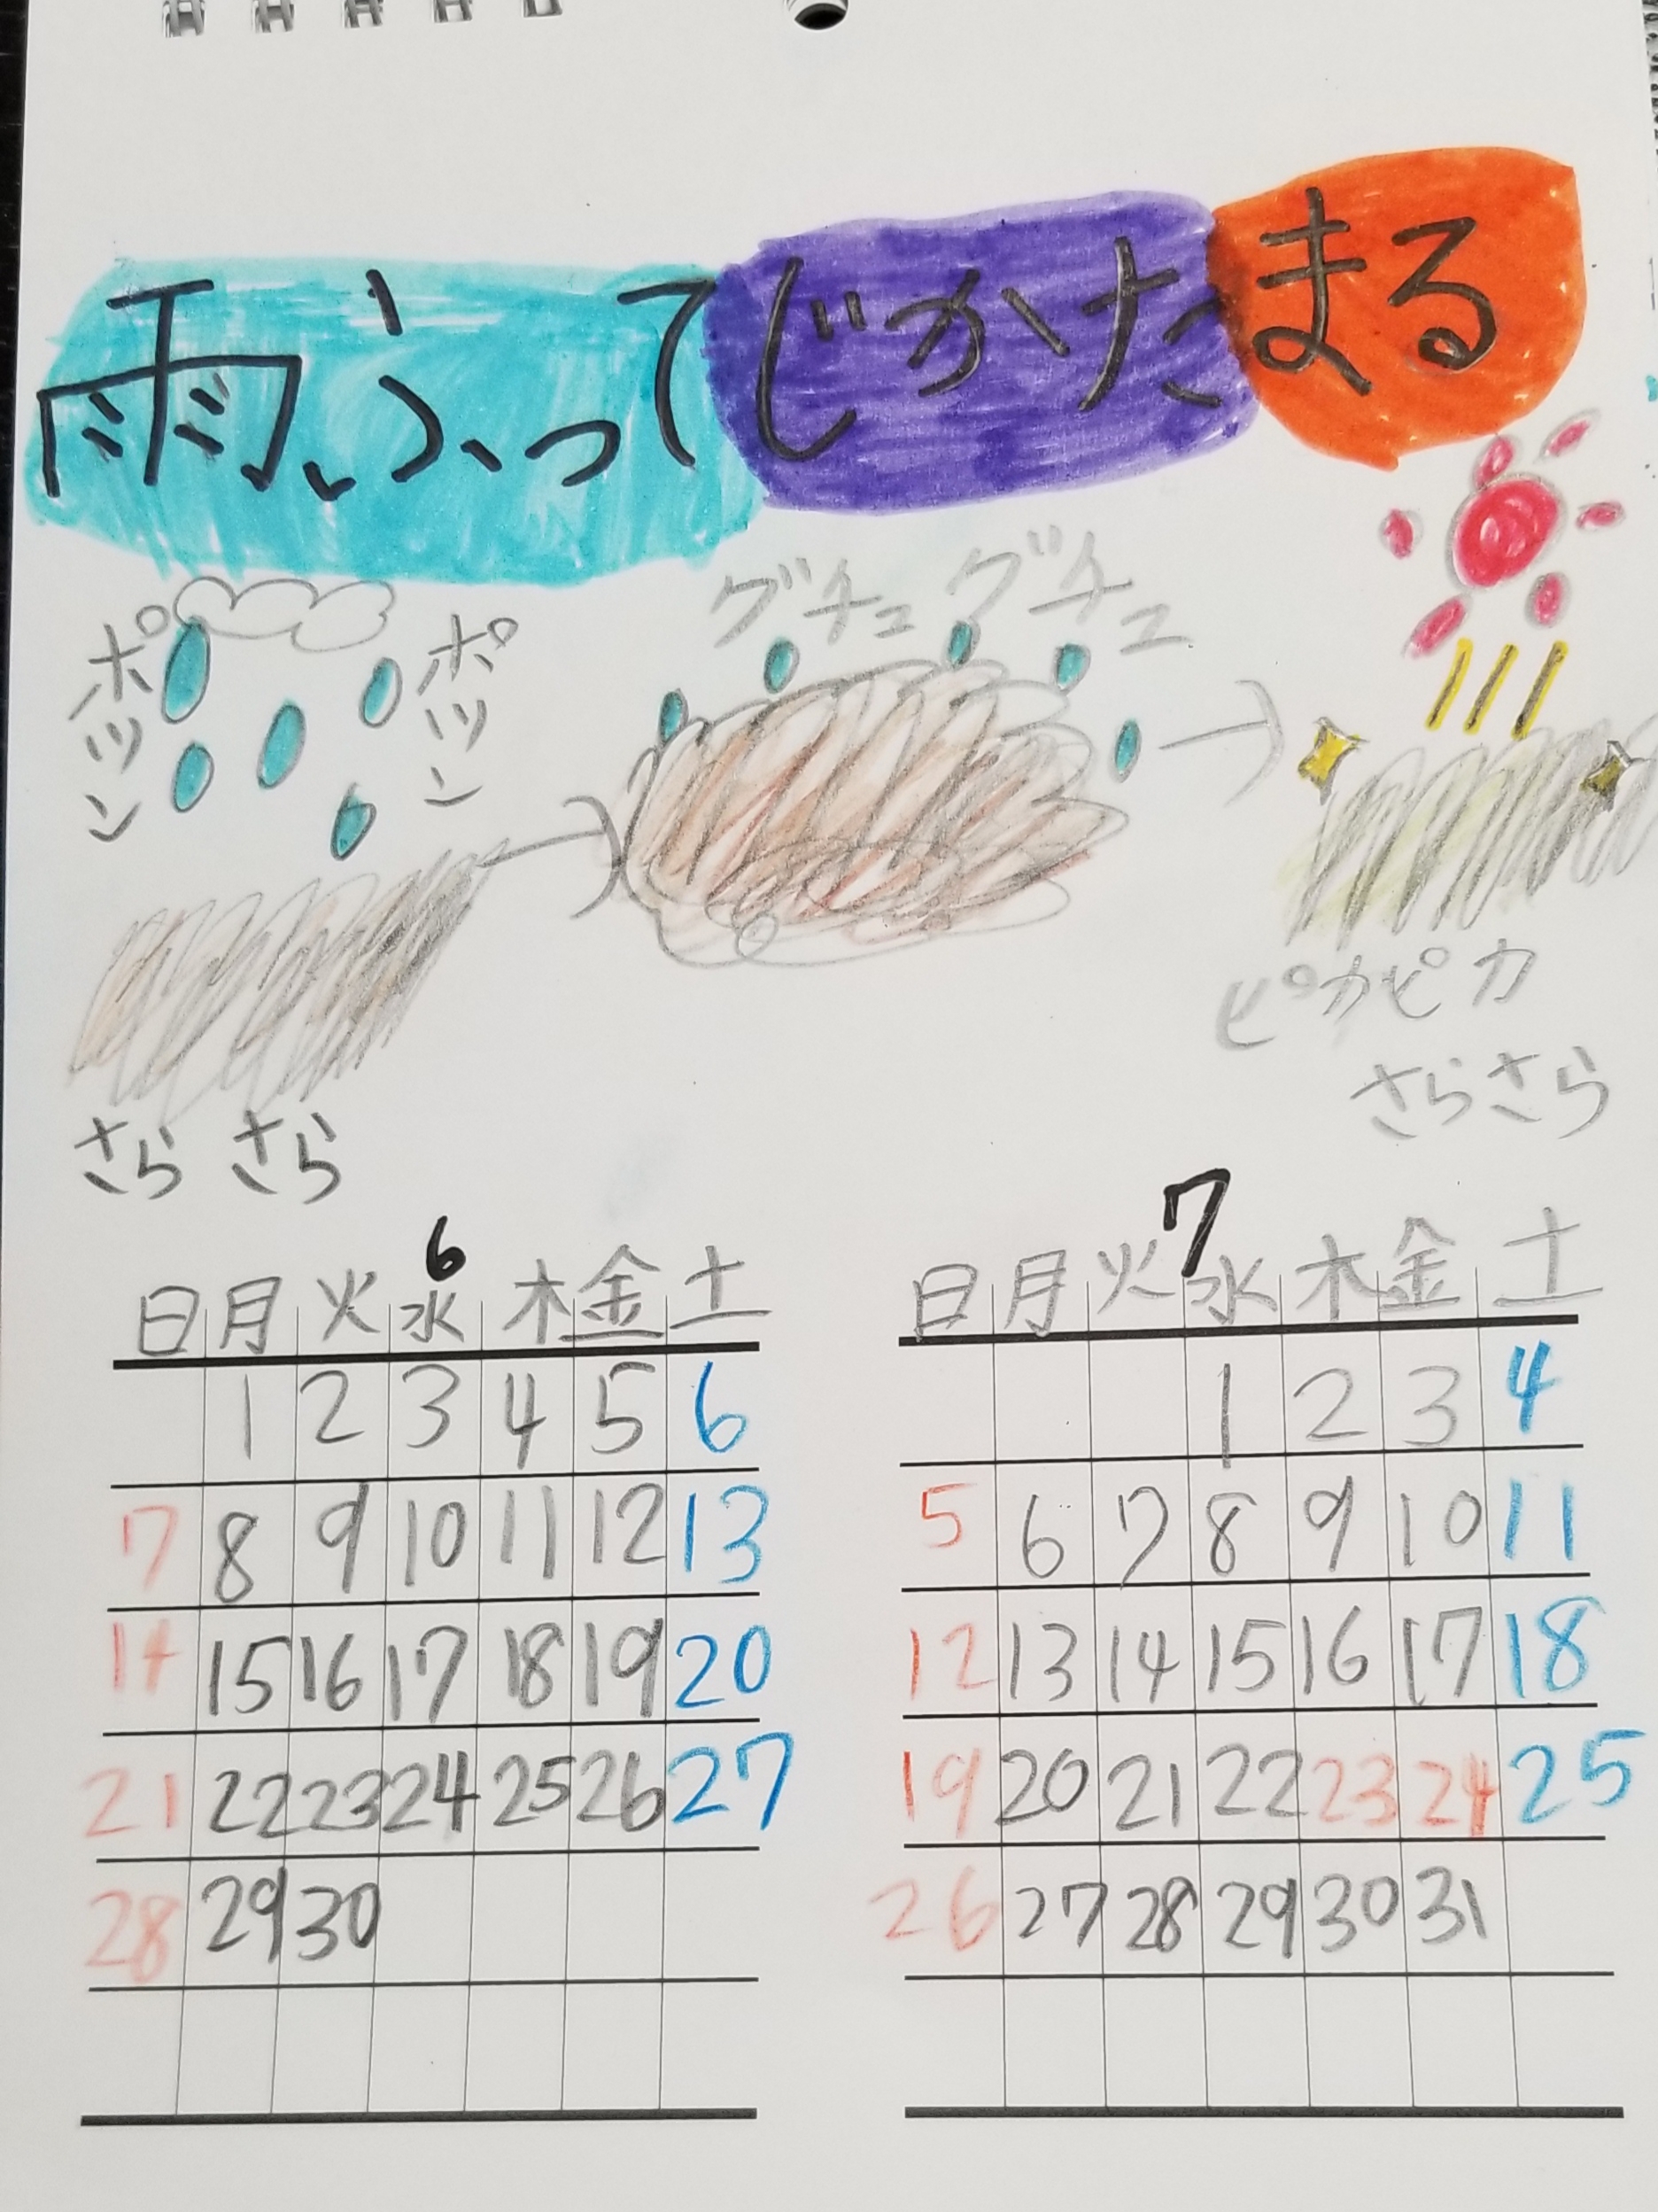 雨ふってじかたまる
ポツン
ポツン
グチュグチュ
ピカピカ
さらさら
さら さら
6
日 月 火 水 木 金 土
1 2 3 4 5 6
7 8 9 10 11 12 13
14 15 16 17 18 19 20
21 22 23 24 25 26 27
28 29 30
7
日 月 火 水 木 金 土
1 2 3 4
5 6 7 8 9 10 11
12 13 14 15 16 17 18
19 20 21 22 23 24 25
26 27 28 29 30 31